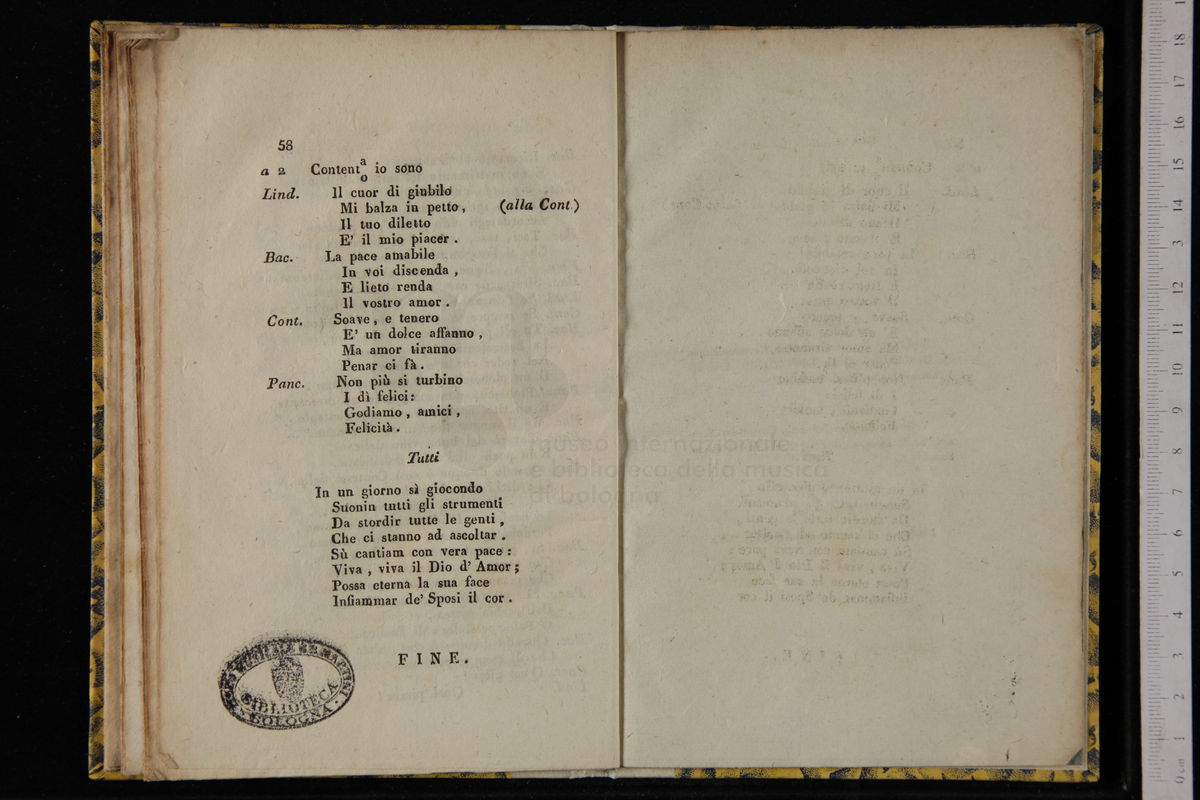 58
a 2 Content a/o io sono
Lind. Il cuor di giubilo
Mi balza in petto, (alla Cont.)
Il tuo diletto
E' il mio piacer.
Bac. La pace amabile
In voi discenda,
E lieto renda
Il vostro amor.
Cont. Soave, e tenero
E' un dolce affanno,
Ma amor tiranno
Penar ci fà.
Panc. Non più si turbino
I dì felici:
Godiamo, amici,
Felicità.
Tutti
In un giorno sì giocondo
Suonin tutti gli strumenti
Da stordir tutte le genti,
Che ci stanno ad ascoltar.
Sù cantiam con vera pace:
Viva, viva il Dio d' Amor;
Possa eterna la sua face
Infiammar de' Sposi il cor.
FINE.
BIBLIOTECA
BOLOGNA
museo internazionale
e biblioteca della musica
di bologna
0 cm 1 2 3 4 5 6 7 8 9 10 11 12 13 14 15 16 17 18